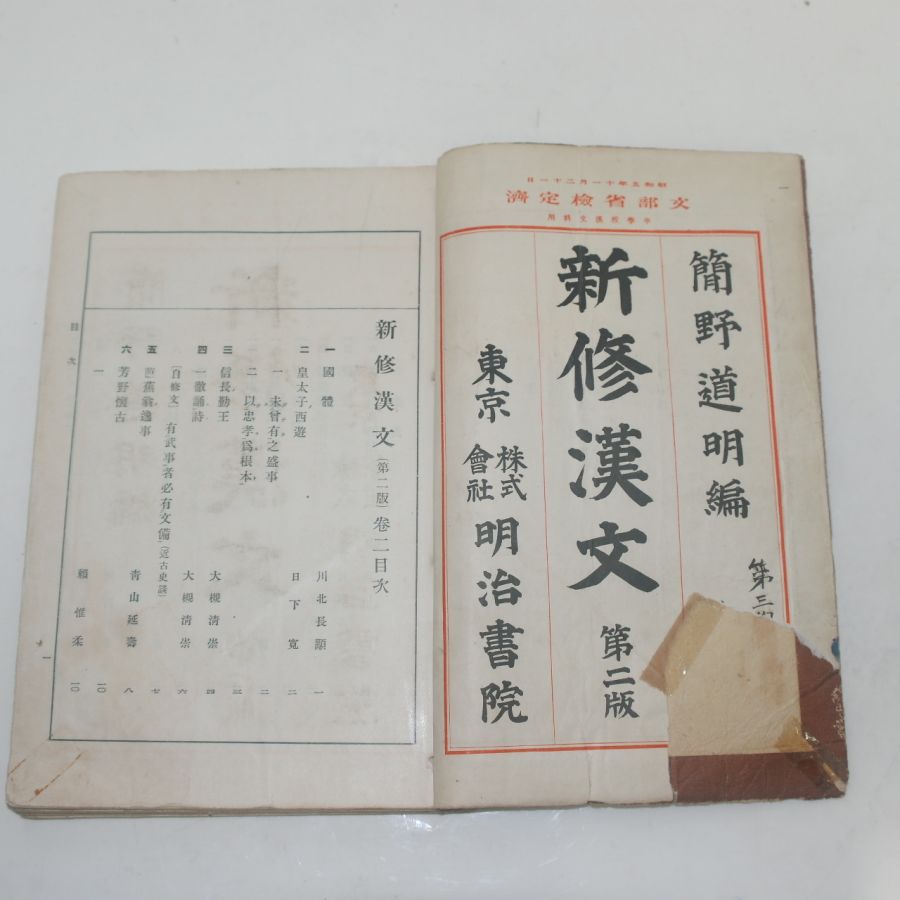 昭和五年十一月二十一日
文部省檢定濟
中學校漢文科用
簡野道明編
新修漢文 第二版
東京 株式會社 明治書院
新修漢文(第二版)卷二目次
一 國體 川北長顒 一
二 皇太子西遊 日下寬 二
一 未曾有之盛事 二
二 以忠孝爲根本 三
三 信長勤王 大槻清崇 四
四 一徹誦詩 大槻清崇 六
〔自修文〕有武事者必有文備(近古史談) 七
五 芭蕉翁逸事 青山延壽 八
六 芳野懷古 一〇
一 賴惟柔 一〇
目次
一